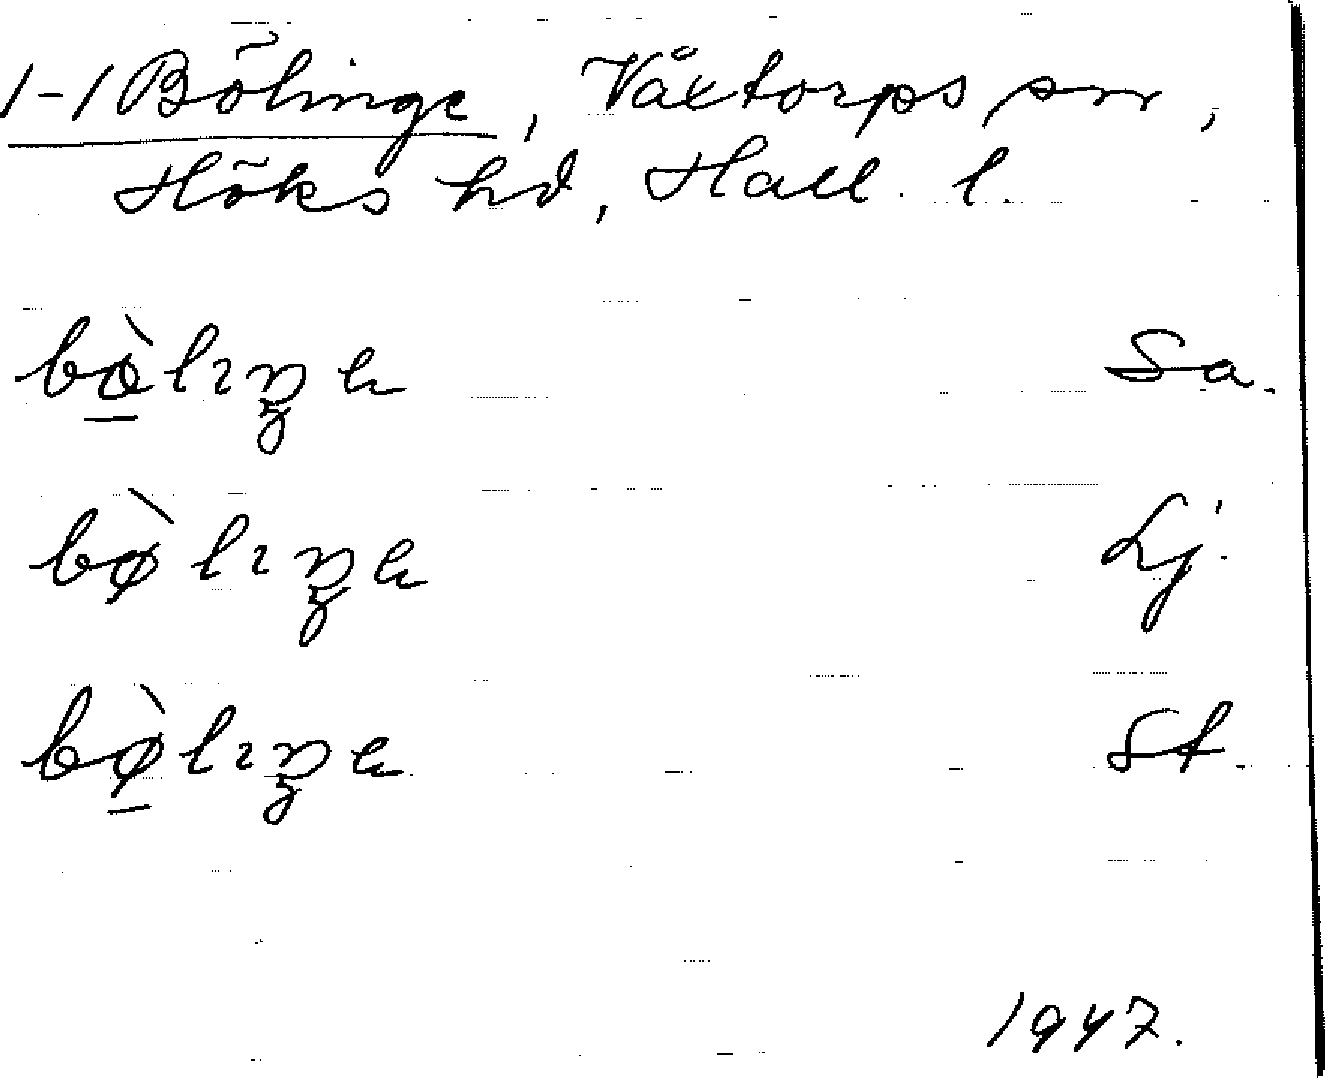 1-1 Bölinge, Våxtorps sn,
Höks hd, Hall. l.
bø̀lıŋɛ Sa.
bø̀lıŋɛ Lj.
bø̀lıŋɛ St.
1947.